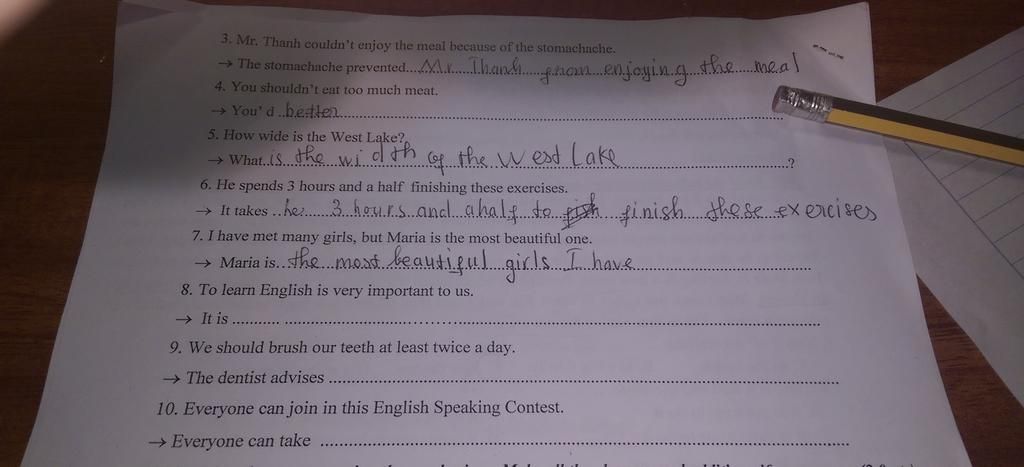 3. Mr. Thanh couldn't enjoy the meal because of the stomachache.
→ The stomachache prevented...Mr Thanh from enjoying the meal
4. You shouldn't eat too much meat.
→ You'd ..better.............................................................
5. How wide is the West Lake?
→ What..is the width of the West Lake..............................?
6. He spends 3 hours and a half finishing these exercises.
→ It takes ..he... 3 hours and a half to finish these exercises
7. I have met many girls, but Maria is the most beautiful one.
→ Maria is...the most beautiful girls I have..............................
8. To learn English is very important to us.
→ It is ........... ..............................................................
9. We should brush our teeth at least twice a day.
→ The dentist advises ..............................................................
10. Everyone can join in this English Speaking Contest.
→ Everyone can take ..............................................................